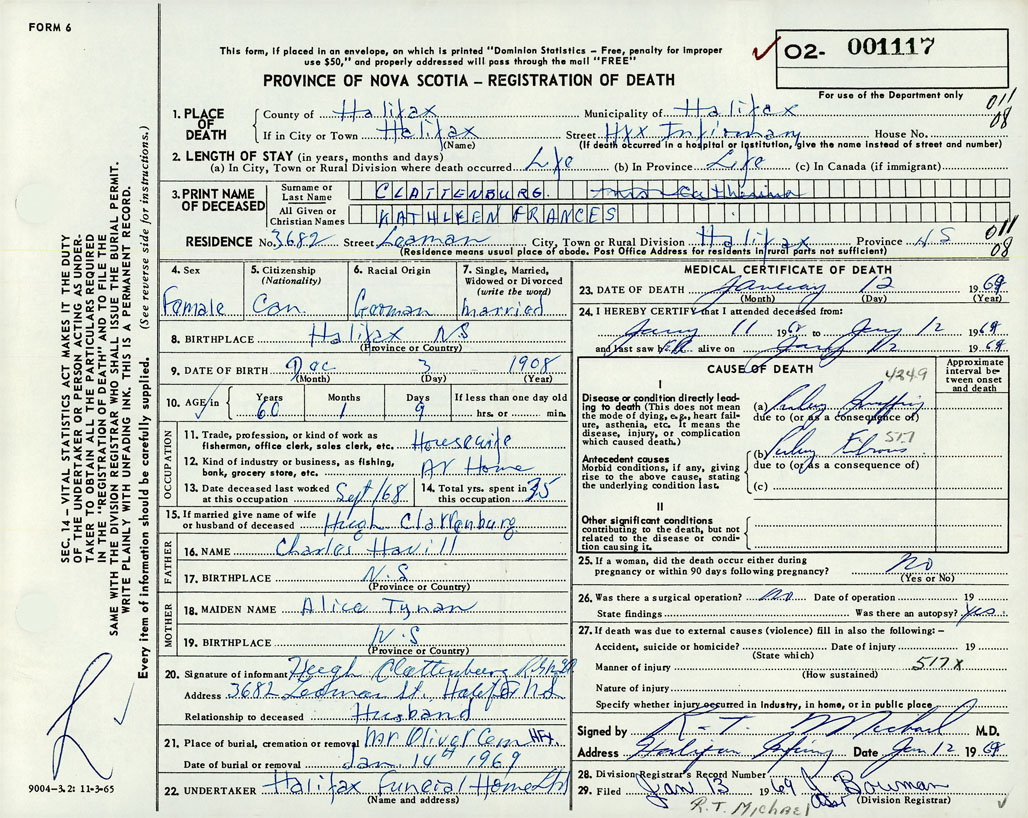 FORM 6
This form, if placed in an envelope, on which is printed "Dominion Statistics – Free, penalty for improper
use $50," and properly addressed will pass through the mail "FREE"
PROVINCE OF NOVA SCOTIA – REGISTRATION OF DEATH
02- 001117
For use of the Department only
011
08
1. PLACE OF DEATH
County of Halifax Municipality of Halifax
If in City or Town Halifax Street Hfx Infirmary House No.
(Name) (If death occurred in a hospital or institution, give the name instead of street and number)
2. LENGTH OF STAY (in years, months and days)
(a) In City, Town or Rural Division where death occurred Life (b) In Province Life (c) In Canada (if immigrant)
3. PRINT NAME OF DECEASED
Surname or Last Name CLATTENBURG
All Given or Christian Names KATHLEEN FRANCES
RESIDENCE No. 3682 Street Leaman City, Town or Rural Division Halifax Province NS
(Residence means usual place of abode. Post Office Address for residents in rural parts not sufficient)
011
08
4. Sex
Female
5. Citizenship (Nationality)
Can
6. Racial Origin
German
7. Single, Married, Widowed or Divorced (write the word)
Married
8. BIRTHPLACE Halifax NS
(Province or Country)
9. DATE OF BIRTH Dec 3 1908
(Month) (Day) (Year)
10. AGE in Years Months Days If less than one day old
60 1 9 hrs. or min.
OCCUPATION
11. Trade, profession, or kind of work as fisherman, office clerk, sales clerk, etc. Housewife
12. Kind of industry or business, as fishing, bank, grocery store, etc. At Home
13. Date deceased last worked at this occupation Sept/68
14. Total yrs. spent in this occupation 35
15. If married give name of wife or husband of deceased Hugh Clattenburg
FATHER
16. NAME Charles Havill
17. BIRTHPLACE N.S
(Province or Country)
MOTHER
18. MAIDEN NAME Alice Tynan
19. BIRTHPLACE N.S
(Province or Country)
20. Signature of informant Hugh Clattenburg
Address 3682 Leaman St. Halifax N.S
Relationship to deceased Husband
21. Place of burial, cremation or removal Mt Olivet Cem HFX.
Date of burial or removal Jan. 14th 1969
22. UNDERTAKER Halifax Funeral Home Ltd
(Name and address)
MEDICAL CERTIFICATE OF DEATH
23. DATE OF DEATH January 12 1969
(Month) (Day) (Year)
24. I HEREBY CERTIFY that I attended deceased from:
Jany 11 196 to Jany 12 1969
and last saw alive on Jany 12 1969
CAUSE OF DEATH
4349
Approximate interval between onset and death
I
Disease or condition directly leading to death (This does not mean the mode of dying, e.g., heart failure, asthenia, etc. It means the disease, injury, or complication which caused death.)
(a)
due to (or as a consequence of)
517
Antecedent causes
Morbid conditions, if any, giving rise to the above cause, stating the underlying condition last.
(b)
due to (or as a consequence of)
(c)
II
Other significant conditions contributing to the death, but not related to the disease or condition causing it.
25. If a woman, did the death occur either during pregnancy or within 90 days following pregnancy? No
(Yes or No)
26. Was there a surgical operation? No Date of operation 19
State findings Was there an autopsy? Yes
27. If death was due to external causes (violence) fill in also the following: –
Accident, suicide or homicide? Date of injury 19
(State which)
Manner of injury 517X
(How sustained)
Nature of injury
Specify whether injury occurred in Industry, in home, or in public place
Signed by R. T. Michael M.D.
Address Halifax Date Jan 12 1969
28. Division Registrar's Record Number
29. Filed Jan 13 1969 J. Bowman
Asst (Division Registrar)
R.T. MICHAEL
SEC. 14 – VITAL STATISTICS ACT MAKES IT THE DUTY
OF THE UNDERTAKER OR PERSON ACTING AS UNDER-
TAKER TO OBTAIN ALL THE PARTICULARS REQUIRED
IN THE "REGISTRATION OF DEATH" AND TO FILE THE
SAME WITH THE DIVISION REGISTRAR WHO SHALL ISSUE THE BURIAL PERMIT.
WRITE PLAINLY WITH UNFADING INK. THIS IS A PERMANENT RECORD.
Every item of information should be carefully supplied. (See reverse side for instructions.)
9004-3.2: 11-3-65